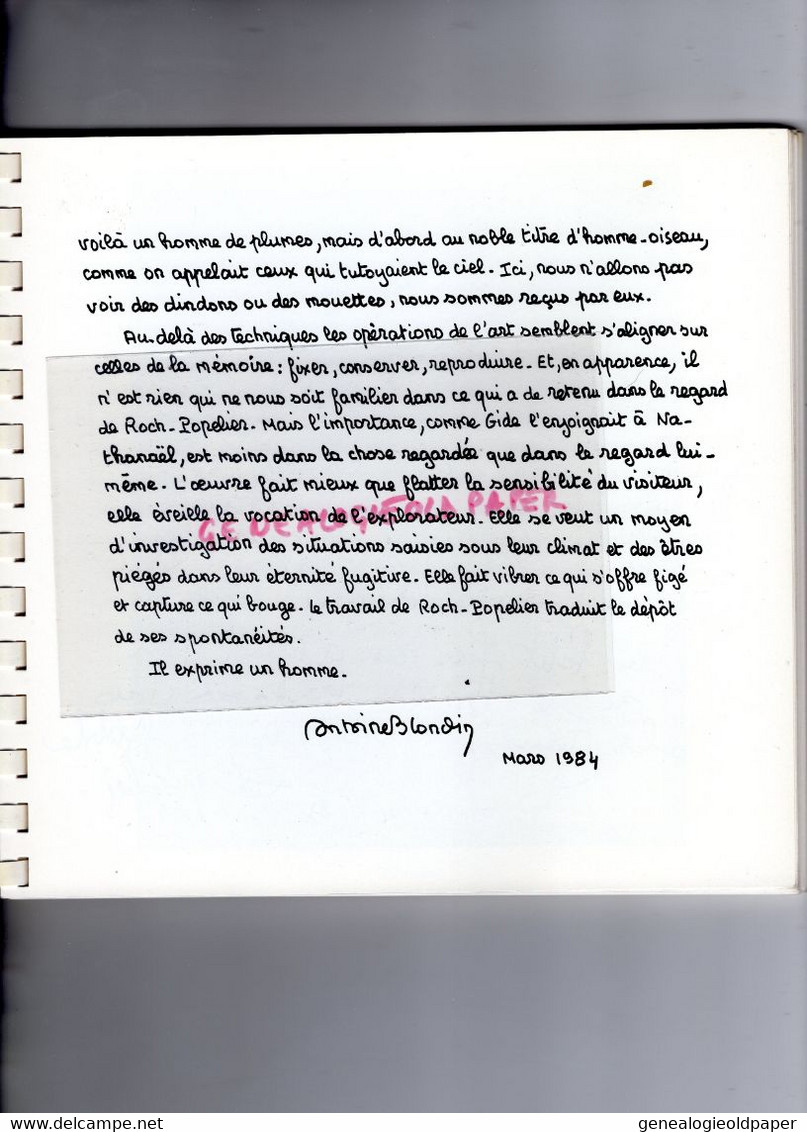 voilà un homme de plumes, mais d'abord au noble titre d'homme-oiseau,
comme on appelait ceux qui tutoyaient le ciel. Ici, nous n'allons pas
voir des dindons ou des mouettes, nous sommes reçus par eux.
Au-delà des techniques les opérations de l'art semblent s'aligner sur
celles de la mémoire : fixer, conserver, reproduire. Et, en apparence, il
n'est rien qui ne nous soit familier dans ce qui a de retenu dans le regard
de Roch-Popelier. Mais l'importance, comme Gide l'enjoignait à Na-
thanaël, est moins dans la chose regardée que dans le regard lui-
même. L'œuvre fait mieux que flatter la sensibilité du visiteur,
elle éveille la vocation de l'explorateur. Elle se veut un moyen
GENEALOGIEOLDPAPER
d'investigation des situations saisies sous leur climat et des êtres
piégés dans leur éternité fugitive. Elle fait vibrer ce qui s'offre figé
et capture ce qui bouge. Le travail de Roch-Popelier traduit le dépôt
de ses spontanéités.
Il exprime un homme.
Antoine Blondin
Mars 1984
delcampe.net
genealogieoldpaper